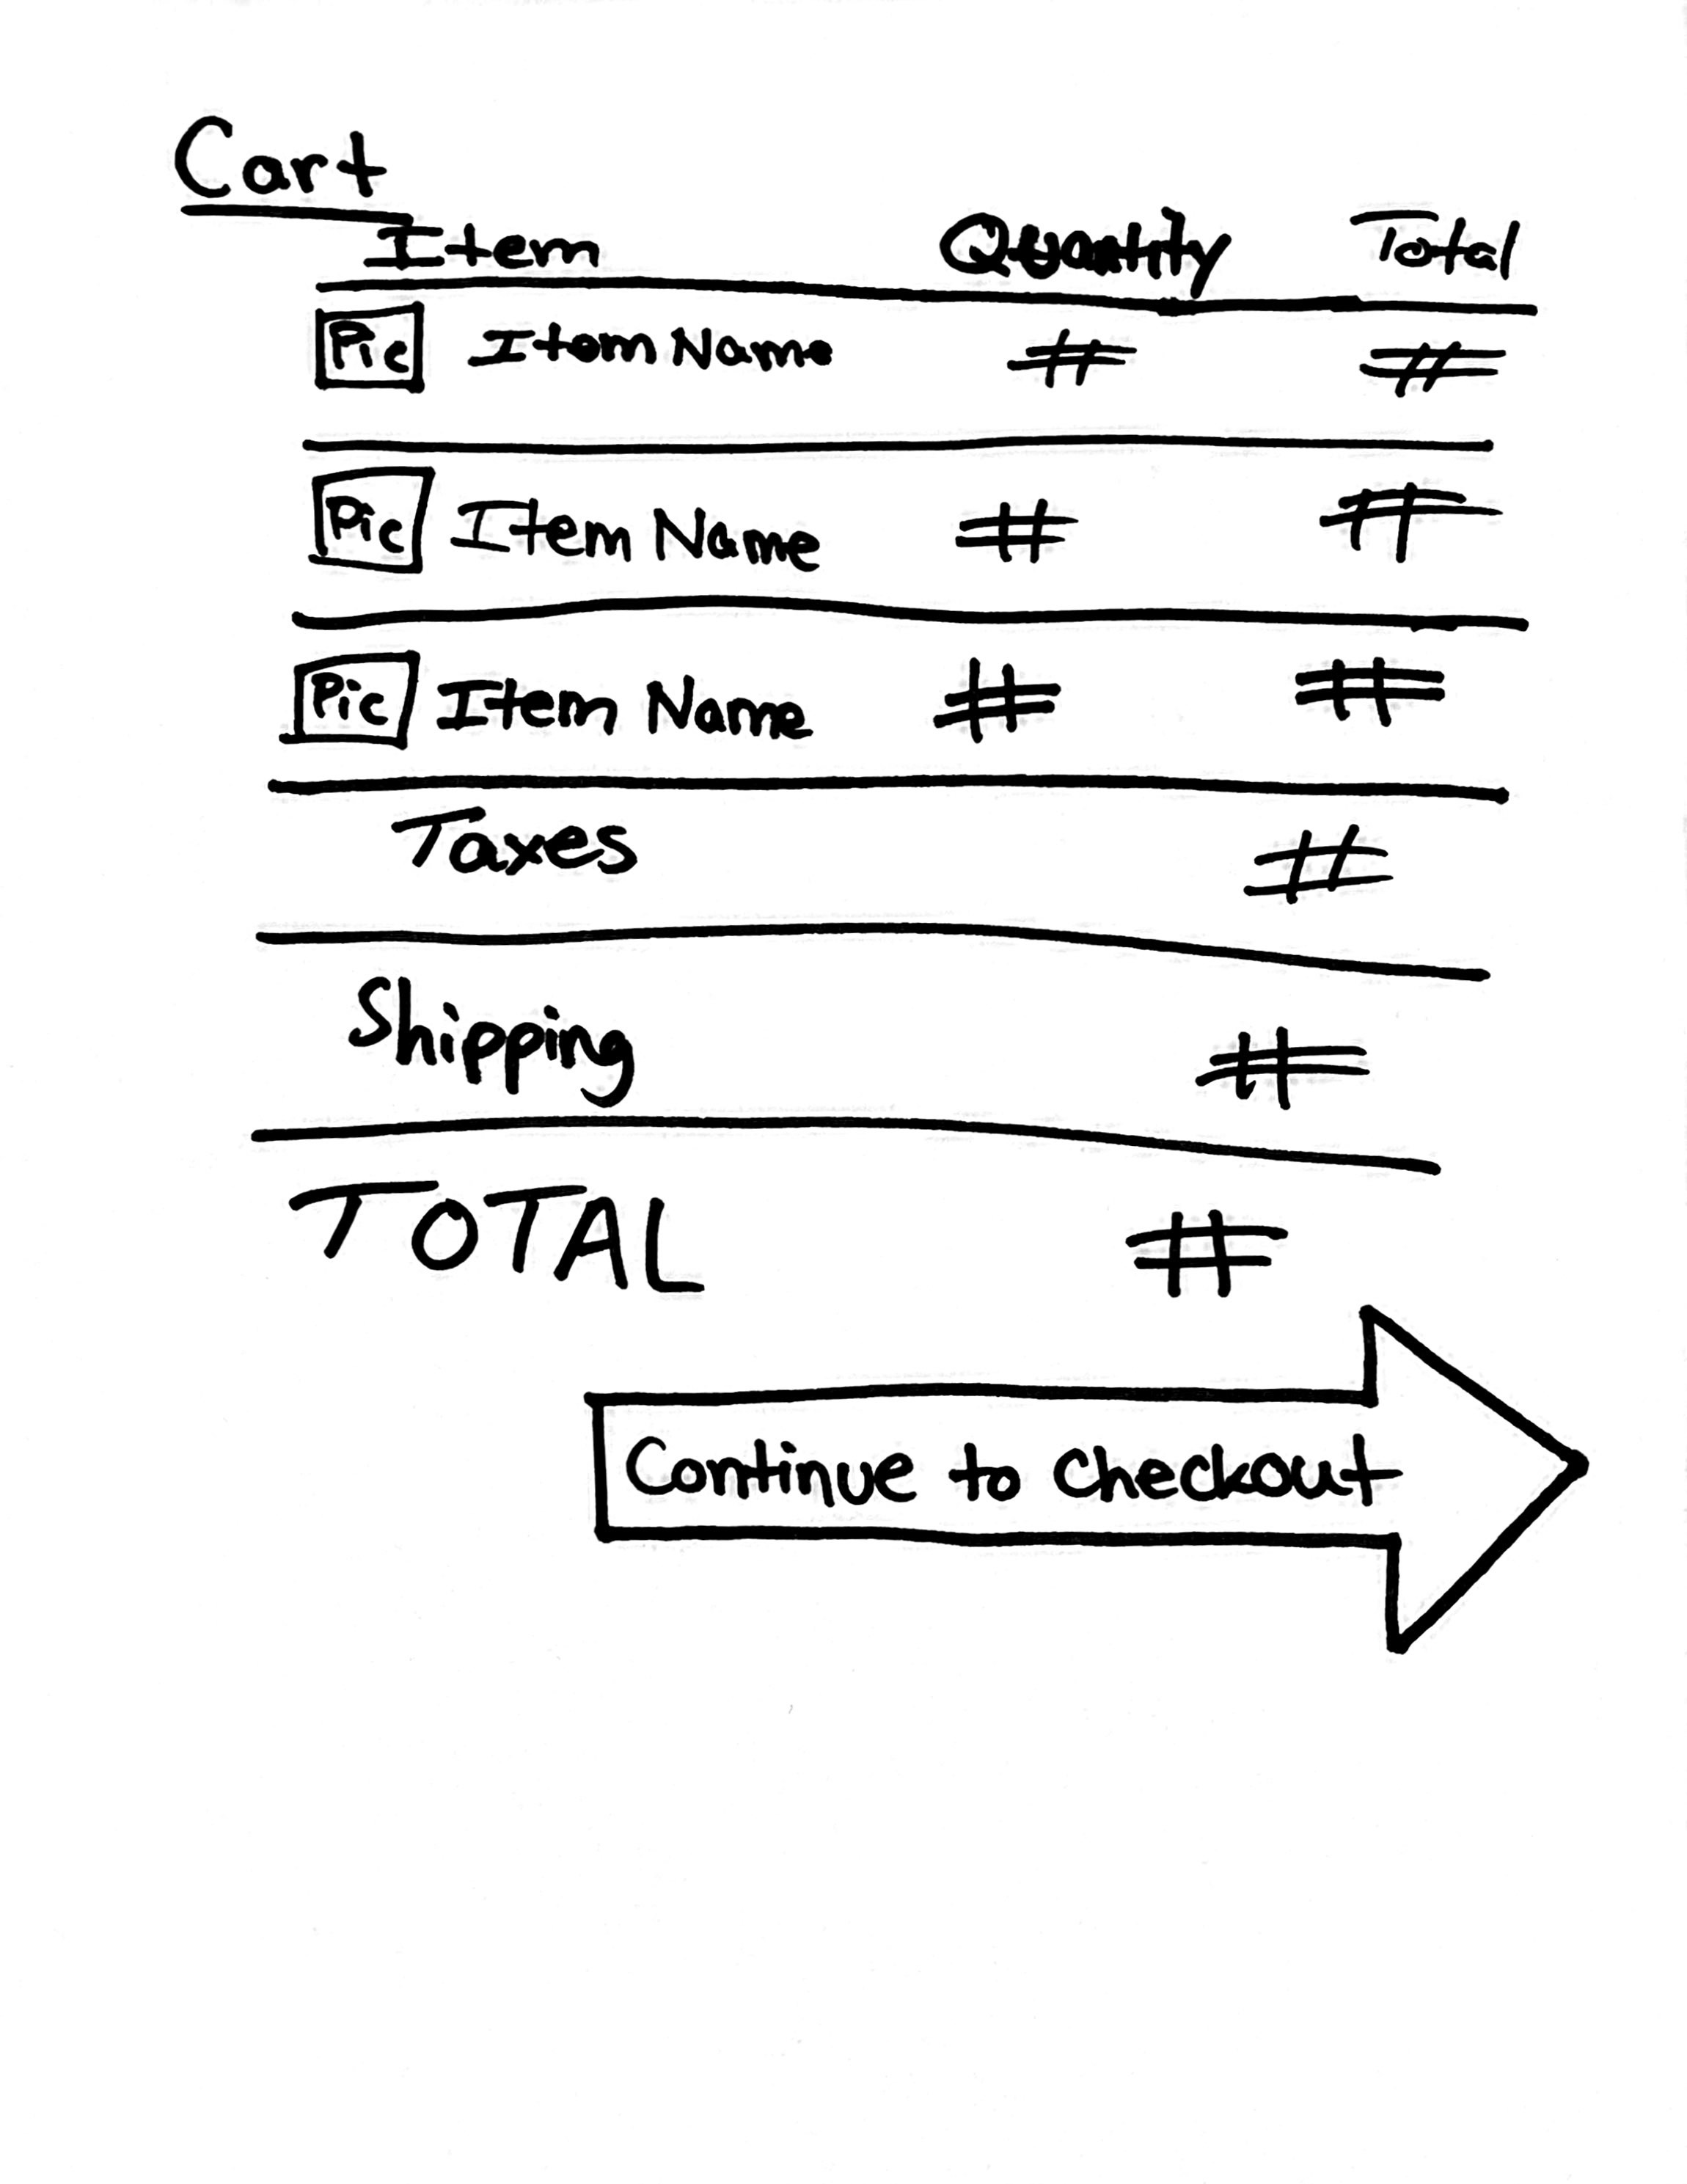 Cart
Item Quantity Total
Pic Item Name # #
Pic Item Name # #
Pic Item Name # #
Taxes #
Shipping #
TOTAL #
Continue to checkout